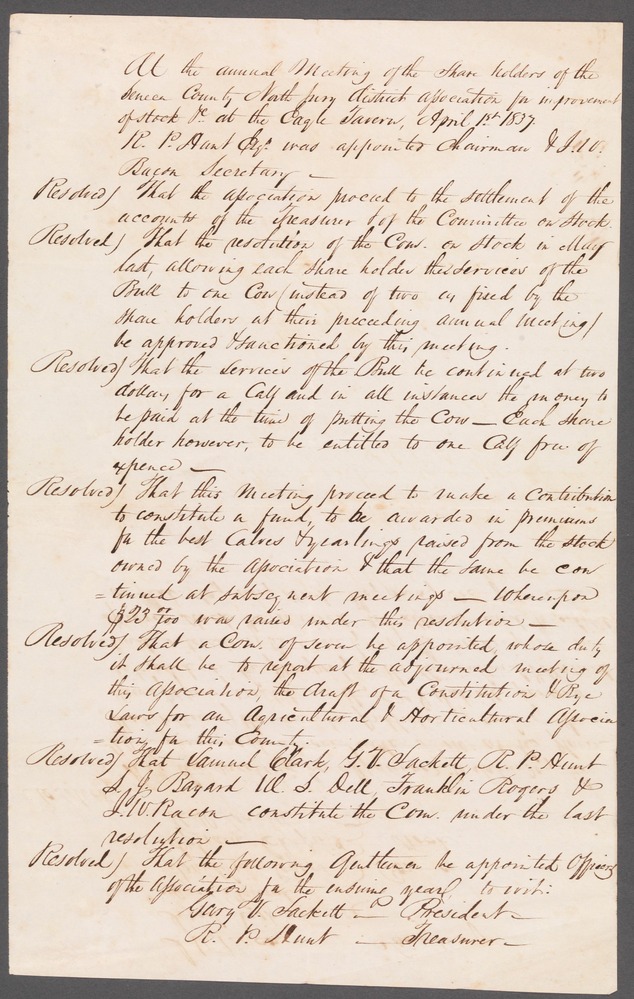 At the annual Meeting of the Share holders of the
Seneca County North Jury district Association for improvement
of stock &c. at the Eagle Tavern, April 1st 1837
R. P. Hunt Esqr. was appointed Chairman & J. W.
Bacon Secretary —
Resolved) That the association proceed to the settlement of the
accounts of the Treasurer & of the Committee on Stock.
Resolved) That the resolution of the Com. on Stock in May
last, allowing each share holder the services of the
Bull to one Cow (instead of two as fixed by the
share holders at their preceding annual meeting)
be approved & sanctioned by this meeting.
Resolved) That the services of the Bull be continued at two
dollars for a Calf and in all instances the money to
be paid at the time of putting the Cow — Each share
holder however, to be entitled to one Calf free of
expence —
Resolved) That this meeting proceed to make a contribution
to constitute a fund, to be awarded in premiums
for the best Calves & yearlings raised from the stock
owned by the association & that the same be con
=tinued at subsequent meetings — Whereupon
$23 00/100 was raised under this resolution —
Resolved) That a Com. of seven be appointed, whose duty
it shall be to report at the adjourned meeting of
this Association, the draft of a Constitution & Bye
Laws for an Agricultural & Horticultural Associa
=tion, for this County.
Resolved) That Samuel Clark, G. V. Sackett, R. P. Hunt
S. J. Bayard W. S. Dell, Franklin Rogers &
J. W. Bacon constitute the Com. under the last
resolution —
Resolved) That the following Gentlemen be appointed Officers
of the Association for the ensuing year, to wit:
Gary V. Sackett — President —
R. P. Hunt — Treasurer —